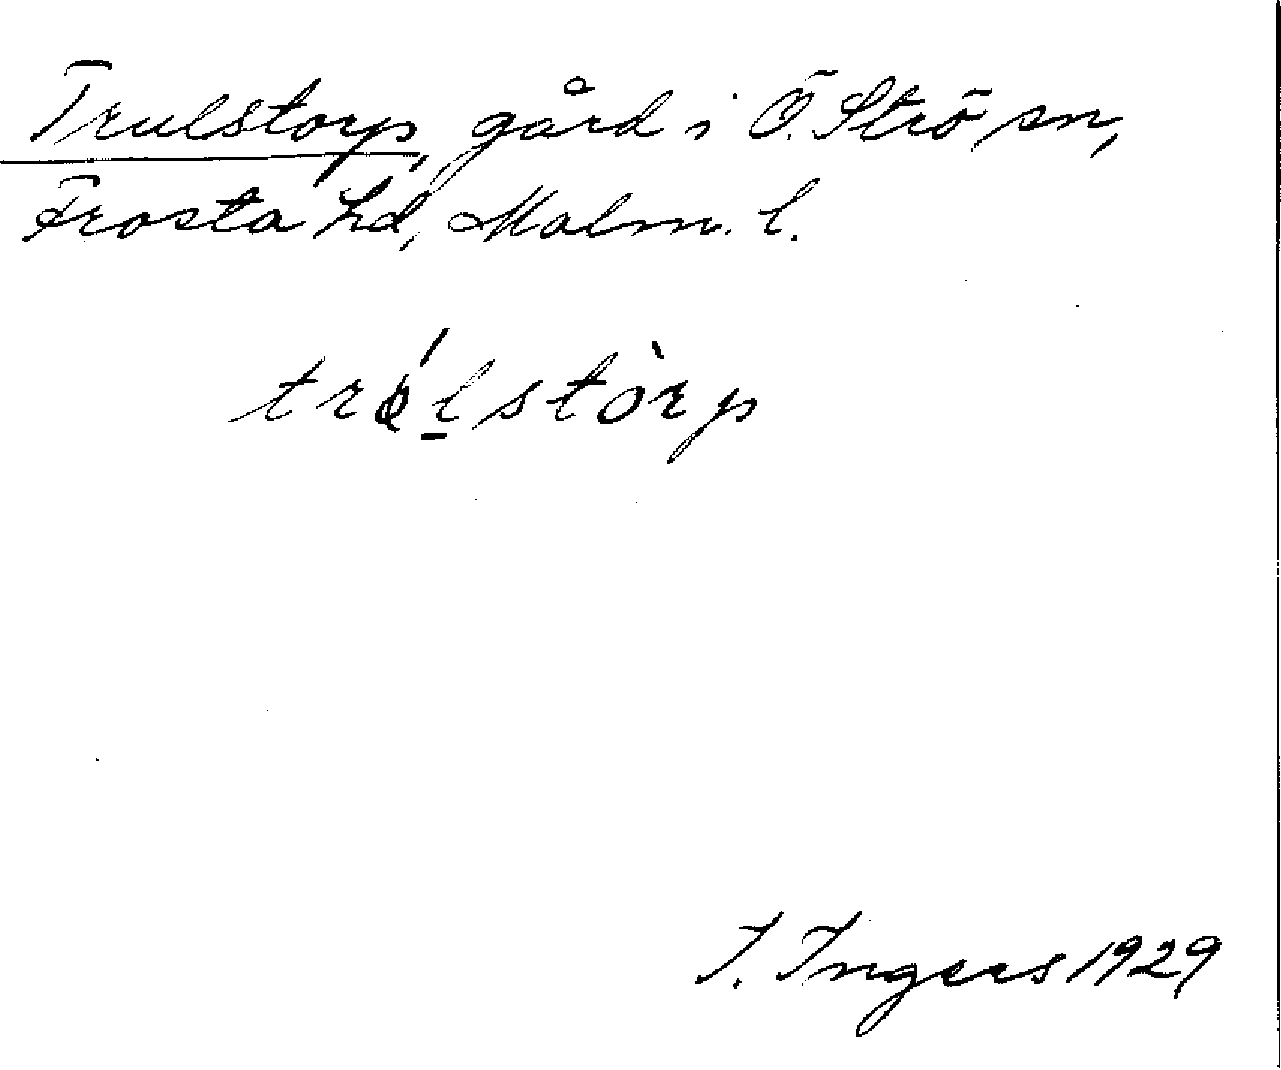 Trulstorp, gård i Ö. Strö sn,
Frosta hd, Malm. l.
trǿlstòrp
I. Ingers 1929